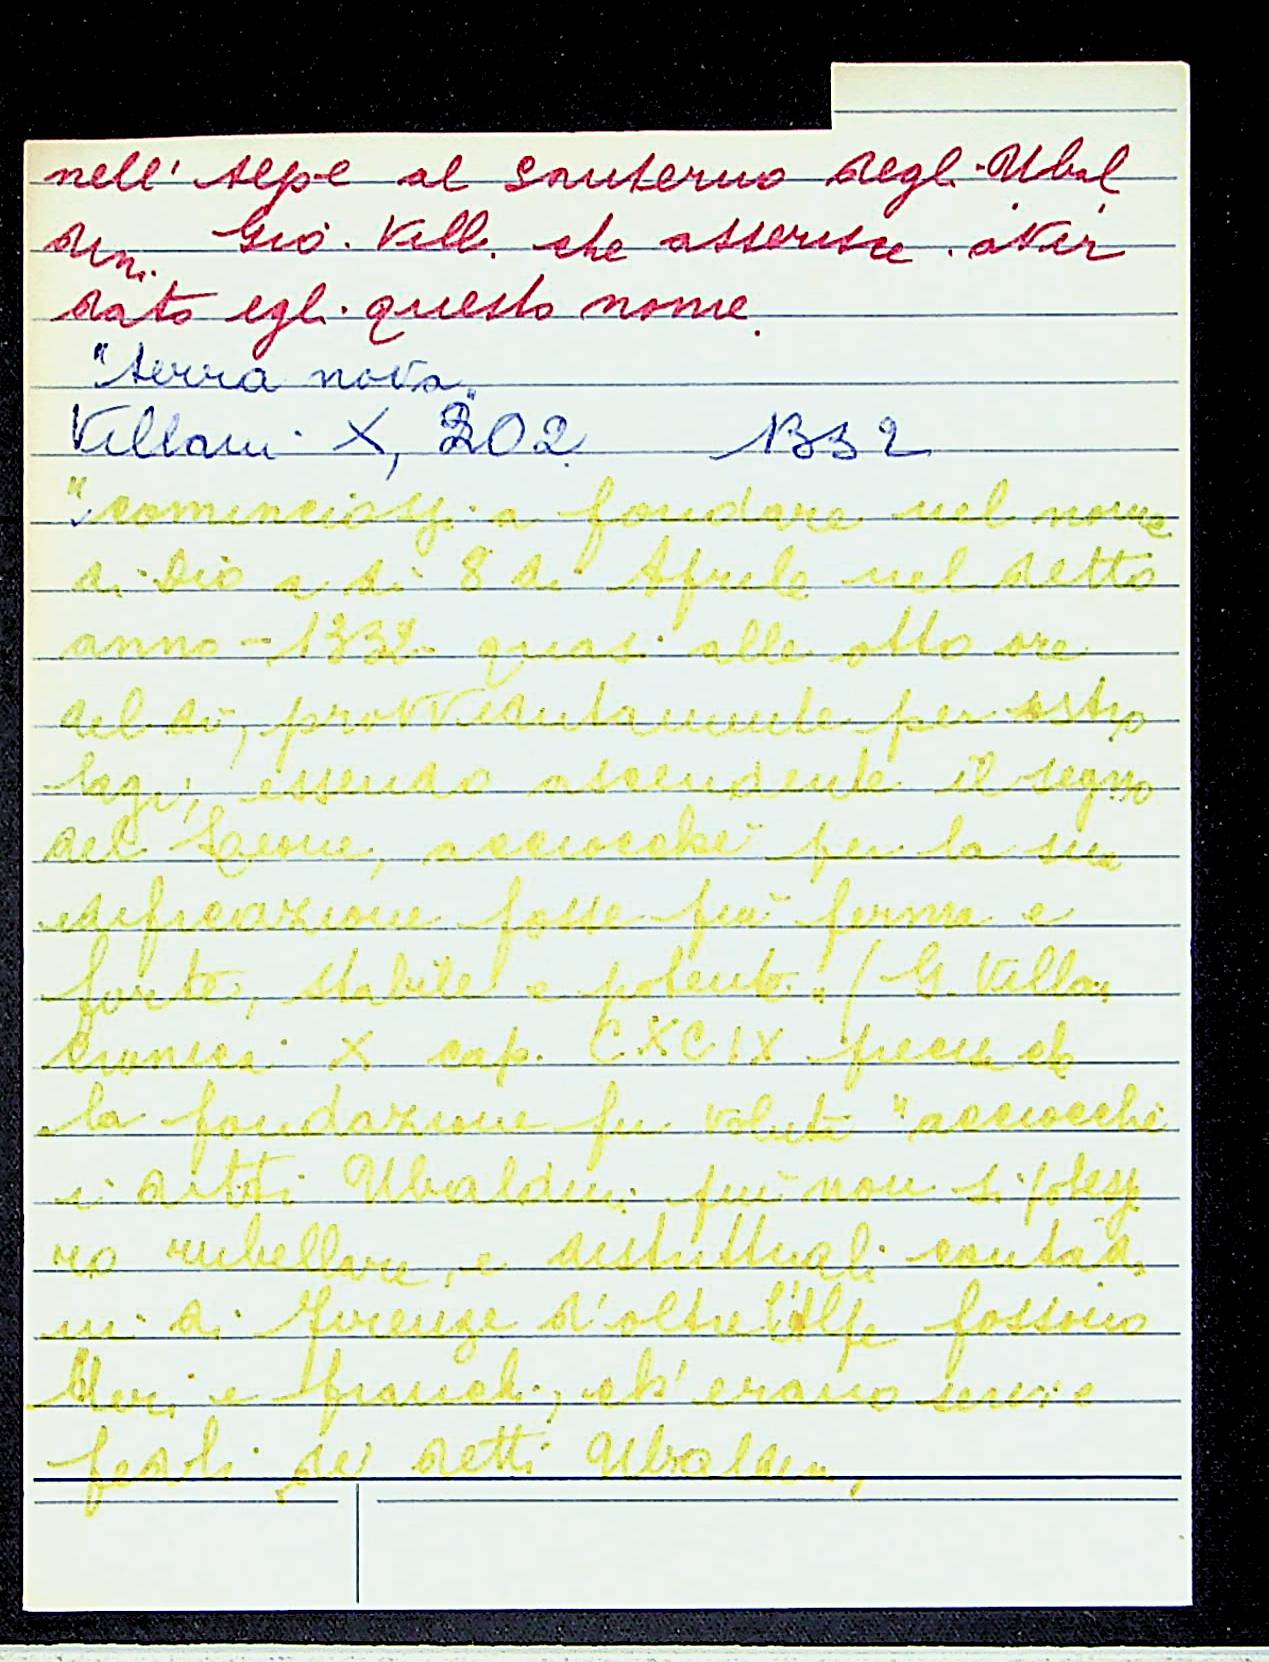 nell' Alpe al Santerno degli Ubal
dini. Giò. Vill. che asserisce avér
dato egli questo nome.
"terra nova"
Villani X, 202 1332
"cominciossi a fondare nel nome
di Dio a dì 8 di Aprile nel detto
anno - 1332 - quasi alle otto ore
del dì, provvedutamente per astro
lagi, essendo ascendente il segno
del Leone, acciocché per la sua
edificazione fosse più ferma e
forte, stabile e potente" / G. Villani
Cronica X cap. CXCIX
la fondazione fu voluta "acciocchè
i detti Ubaldini più non si potess
ro rubellare, e distrittuali contadi
ni di Firenze d'oltre l'Alpe fossono
liberi e franchi, ch'erano servi e
fedeli de' detti Ubaldini,